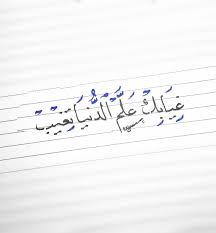 غِيَابِكْ عَلَّمَ الْدُّنْيَا تِغِيْبْ